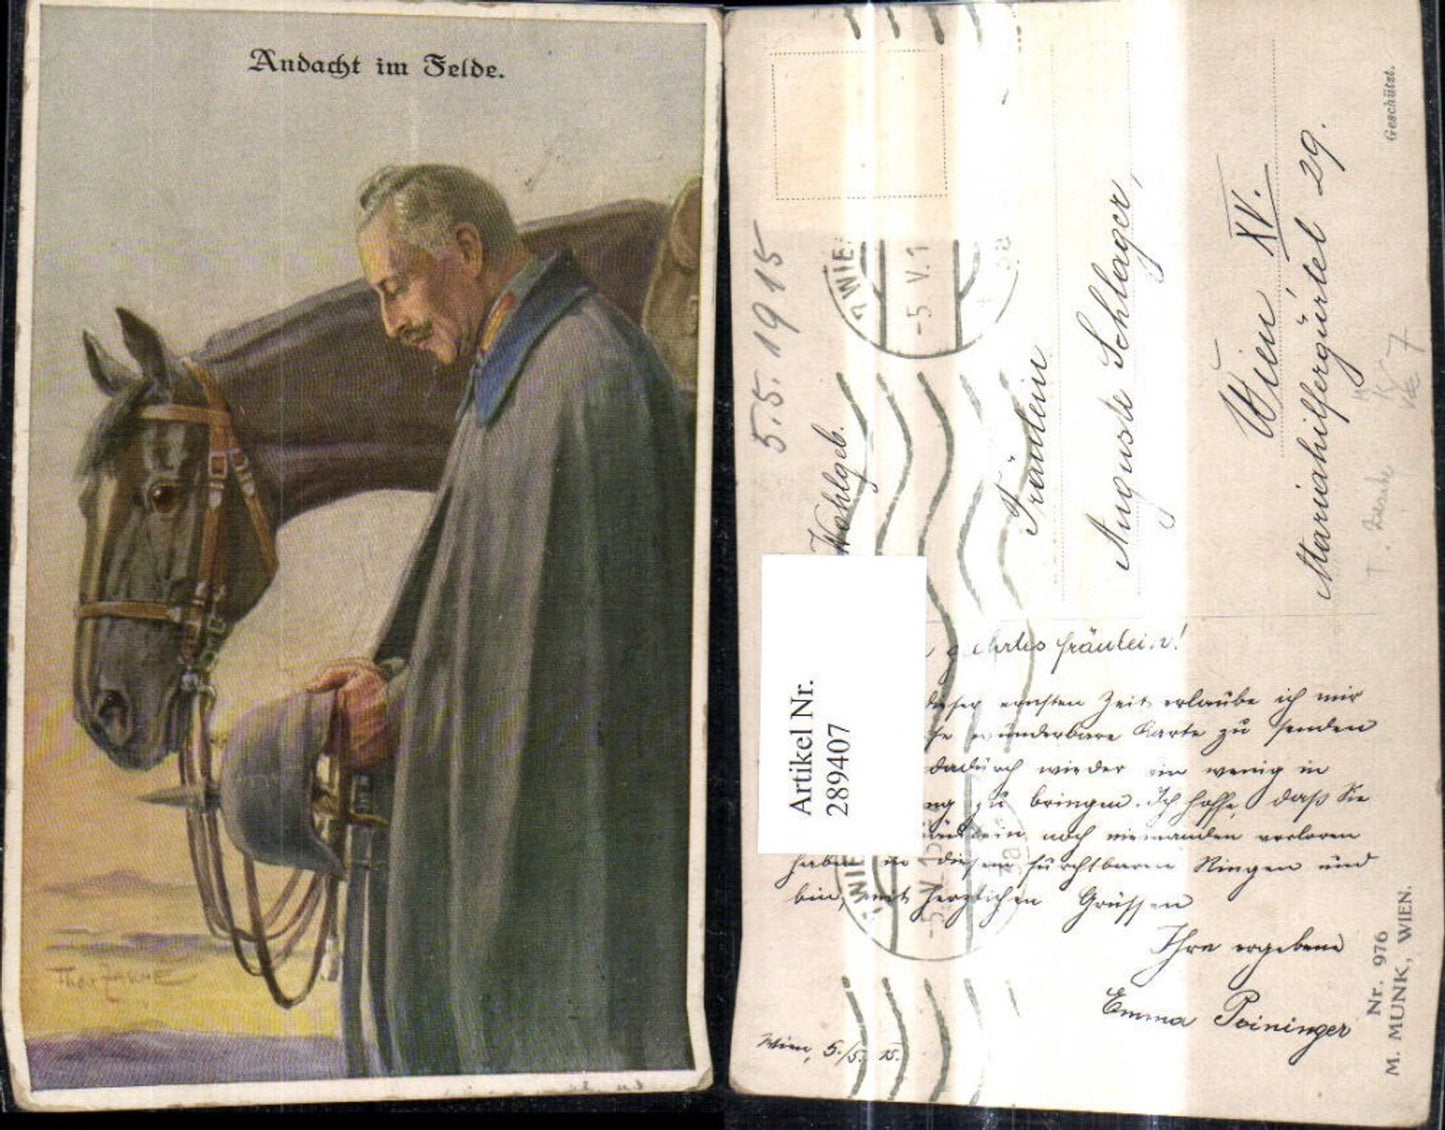 Andacht im Felde.
Geschützt.
5.5.1915
WIEN
-5.V.1
Wohlgeb.
Fräulein
Auguste Schlager,
Wien XV.
Mariahilfergürtel 29.
Artikel Nr.
289407
gehrtes Fräulein!
dieser ernsten Zeit erlaube ich mir
wunderbare Karte zu senden
dadurch wieder ein wenig in
zu bringen. Ich hoffe, daß Sie
noch niemanden verloren
haben in diesem furchtbaren Ringen und
bin, mit herzlichen Grüssen
Ihre ergebene
Emma Poininger
Wien, 5./5. 15.
WIEN
-5.V.15
Nr. 976
M. MUNK, WIEN.